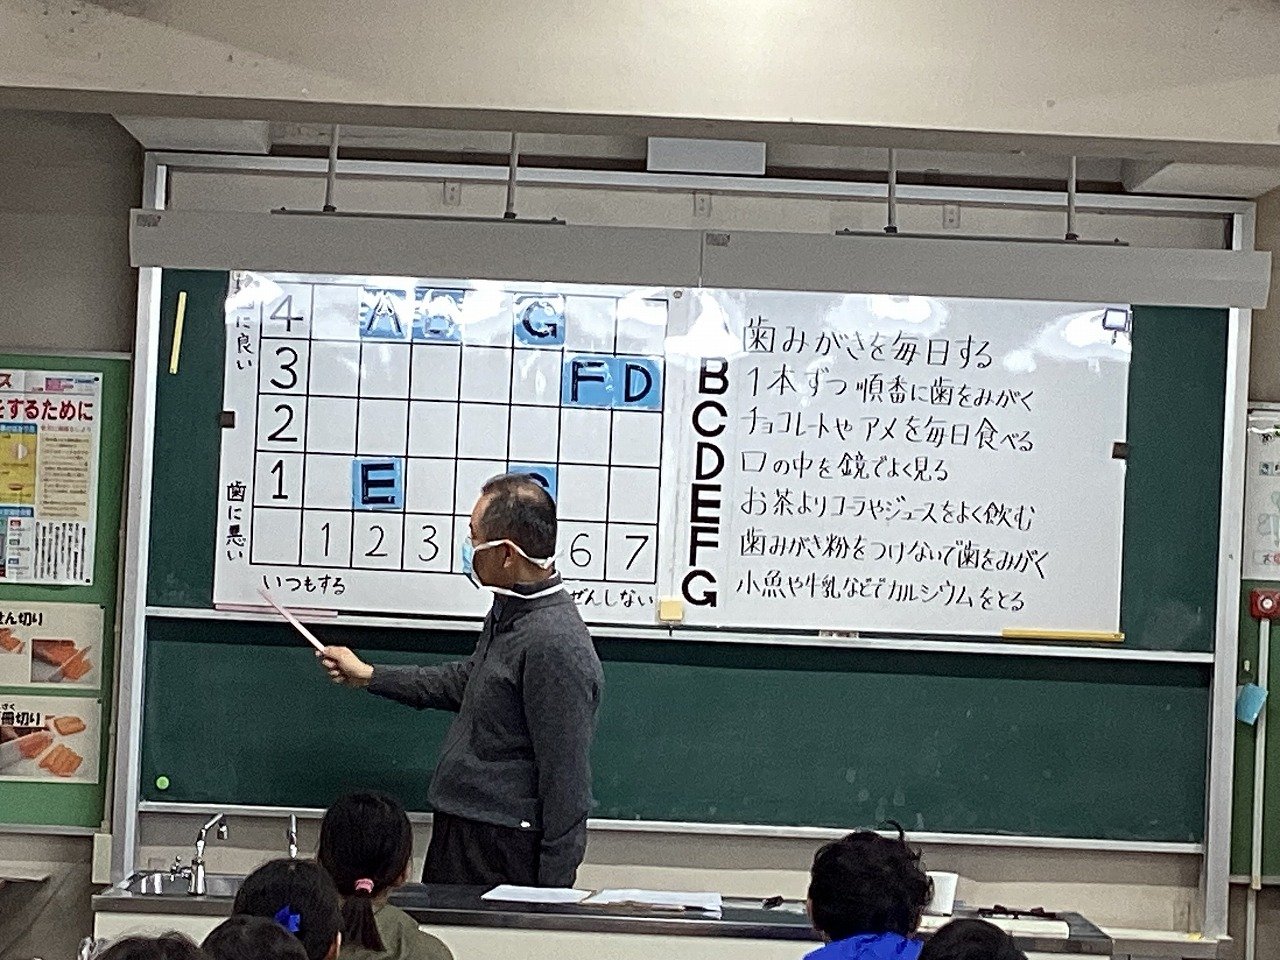 に良い
4 A G
3 F D
2
1 E
1 2 3 6 7
歯に悪い
いつもする
ぜんしない
歯みがきを毎日する
B 1本ずつ順番に歯をみがく
C チョコレートやアメを毎日食べる
D 口の中を鏡でよく見る
E お茶よりコーラやジュースをよく飲む
F 歯みがき粉をつけないで歯をみがく
G 小魚や牛乳などでカルシウムをとる
ス
をするために
せん切り
冊切り